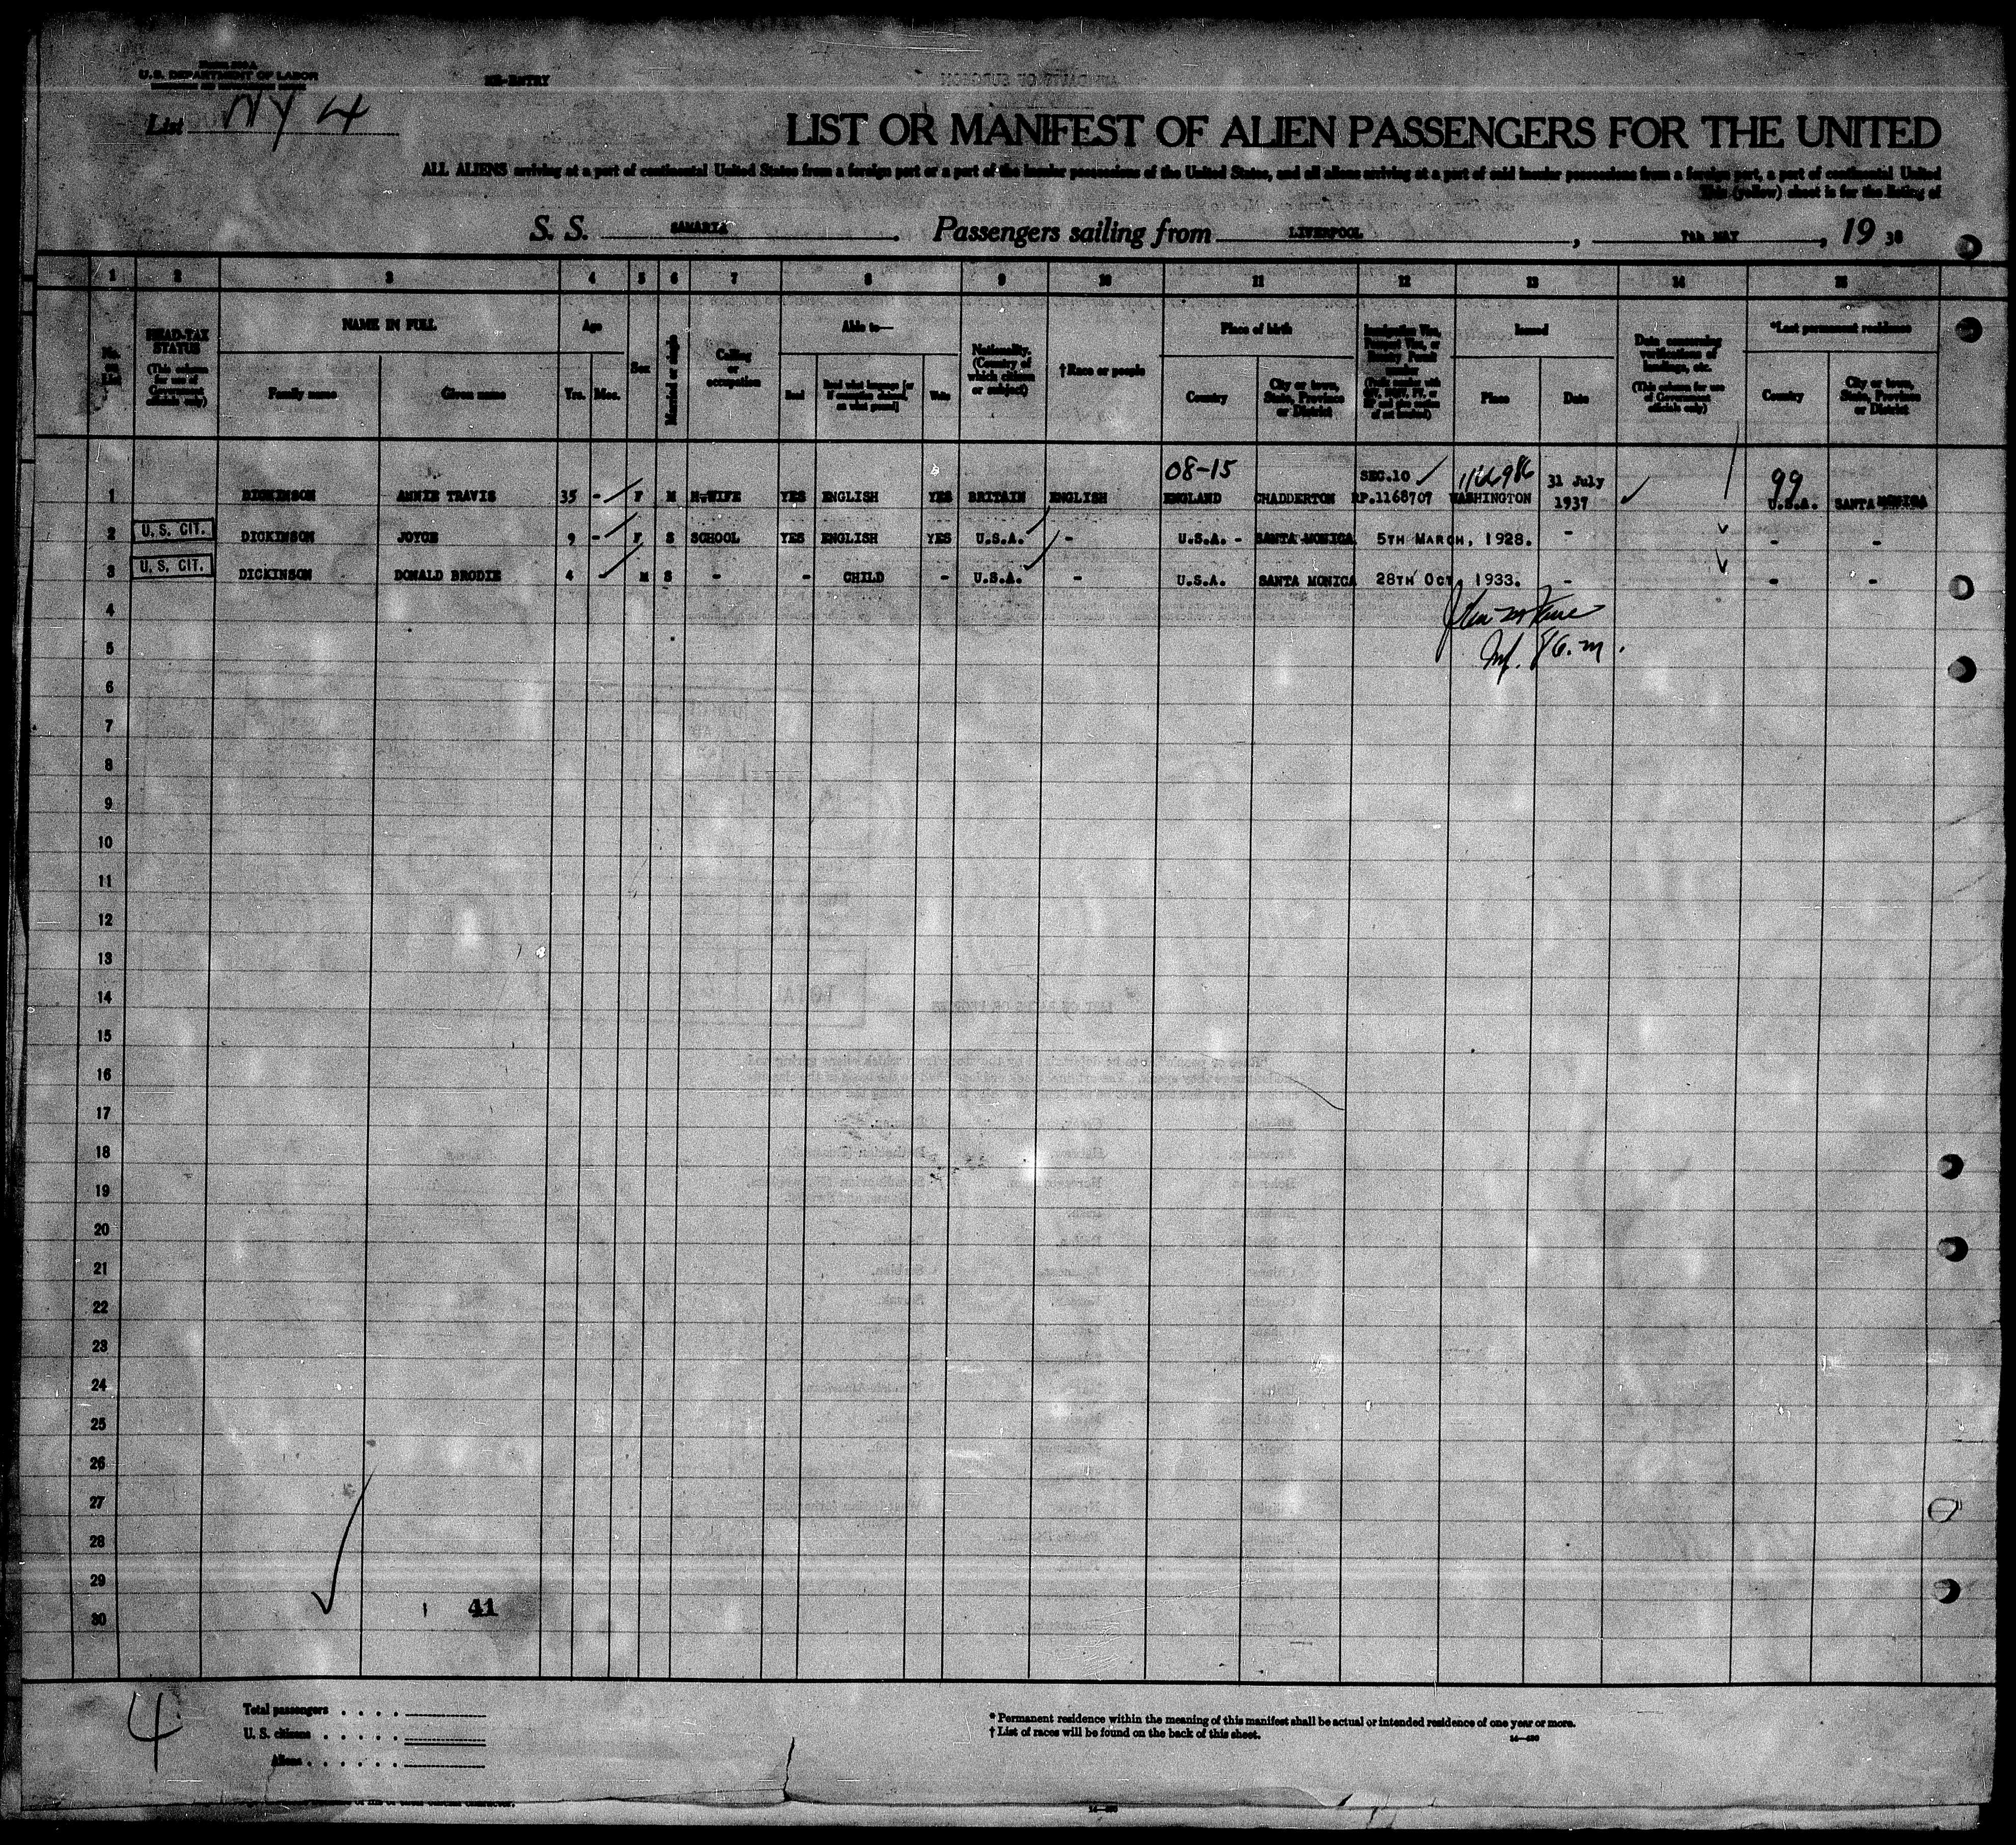 U.S. DEPARTMENT OF LABOR
RE-ENTRY
List NY 4
LIST OR MANIFEST OF ALIEN PASSENGERS FOR THE UNITED
ALL ALIENS arriving at a port of continental United States from a foreign port or a port of the insular possessions of the United States, and all aliens arriving at a port of said insular possessions from a foreign port, a port of continental United
This (yellow) sheet is for the listing of
S. S. SAMARIA. Passengers sailing from LIVERPOOL, 7th MAY, 19 38
1 2 3 4 5 6 7 8 9 10 11 12 13 14 15
No. on List
HEAD-TAX STATUS (This column for use of Government officials only)
NAME IN FULL
Family name
Given name
Age
Yrs. Mos.
Sex
Married or single
Calling or occupation
Able to—
Read
Read what language [or if exemption claimed, on what ground]
Write
Nationality. (Country of which citizen or subject)
†Race or people
Place of birth
Country
City or town, State, Province or District
Immigration Visa,
Issued
Place
Date
Data concerning verifications of landings, etc. (This column for use of Government officials only)
*Last permanent residence
Country
City or town, State, Province or District
08-15 SEC.10 ✓ 31 July 99
1 DICKINSON ANNIE TRAVIS 35 - F M H-WIFE YES ENGLISH YES BRITAIN ENGLISH ENGLAND CHADDERTON RP.1168707 WASHINGTON 1937 ✓ U.S.A. SANTA MONICA
2 U. S. CIT. DICKINSON JOYCE 9 - F S SCHOOL YES ENGLISH YES U.S.A. - U.S.A. - SANTA MONICA 5TH MARCH, 1928. - - -
3 U. S. CIT. DICKINSON DONALD BRODIE 4 M S - - CHILD - U.S.A. - U.S.A. SANTA MONICA 28TH OCT, 1933. - - -
4
5
6
7
8
9
10
11
12
13
14
15
16
17
18
19
20
21
22
23
24
25
26
27
28
29
30
41
4
Total passengers . . . .
U. S. citizens . . . . .
Aliens . . . . . .
* Permanent residence within the meaning of this manifest shall be actual or intended residence of one year or more.
† List of races will be found on the back of this sheet.